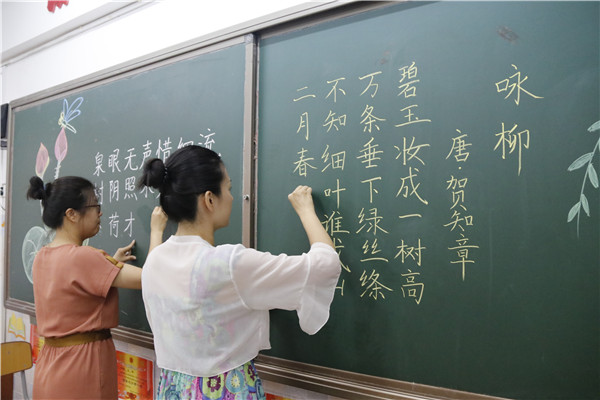 泉眼无声惜细流
阴照
荷才
咏柳
唐 贺知章
碧玉妆成一树高
万条垂下绿丝绦
不知细叶谁
二月春